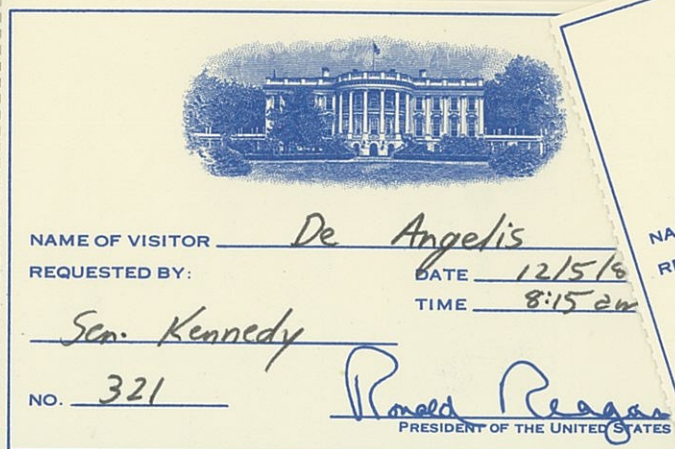 NAME OF VISITOR De Angelis
REQUESTED BY:
DATE 12/5/8
TIME 8:15 am
Sen. Kennedy
NO. 321
Ronald Reagan
PRESIDENT OF THE UNITED STATES
NA
RE